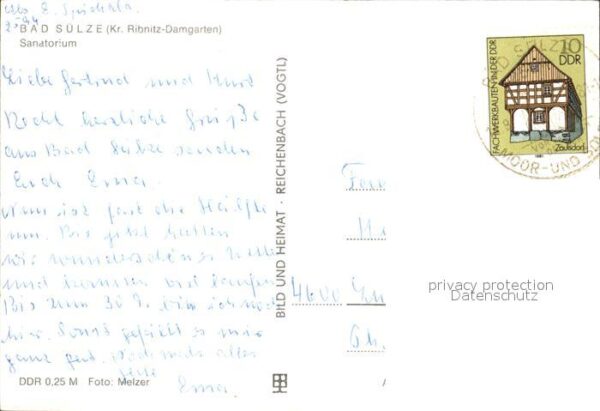 BAD SÜLZE (Kr. Ribnitz-Damgarten)
Sanatorium
Liebe Gertrud und Kurt
Recht herzliche Grüße
aus Bad Sülze senden
Euch Erna.
Nun ist fast die Hälfte
um. Bis jetzt hatten
wir wunderschönes
und konnten viel laufen
Bis zum 30. bin ich noch
hier. Sonst gefällt es mir
ganz gut. Nochmals alles
Erna.
DDR 0,25 M Foto: Melzer
BILD UND HEIMAT · REICHENBACH (VOGTL)
FACHWERKBAUTEN IN DER DDR
10
DDR
Zaulsdorf
1981
BAD SÜLZE
MOOR- UND SOL
4600
privacy protection
Datenschutz